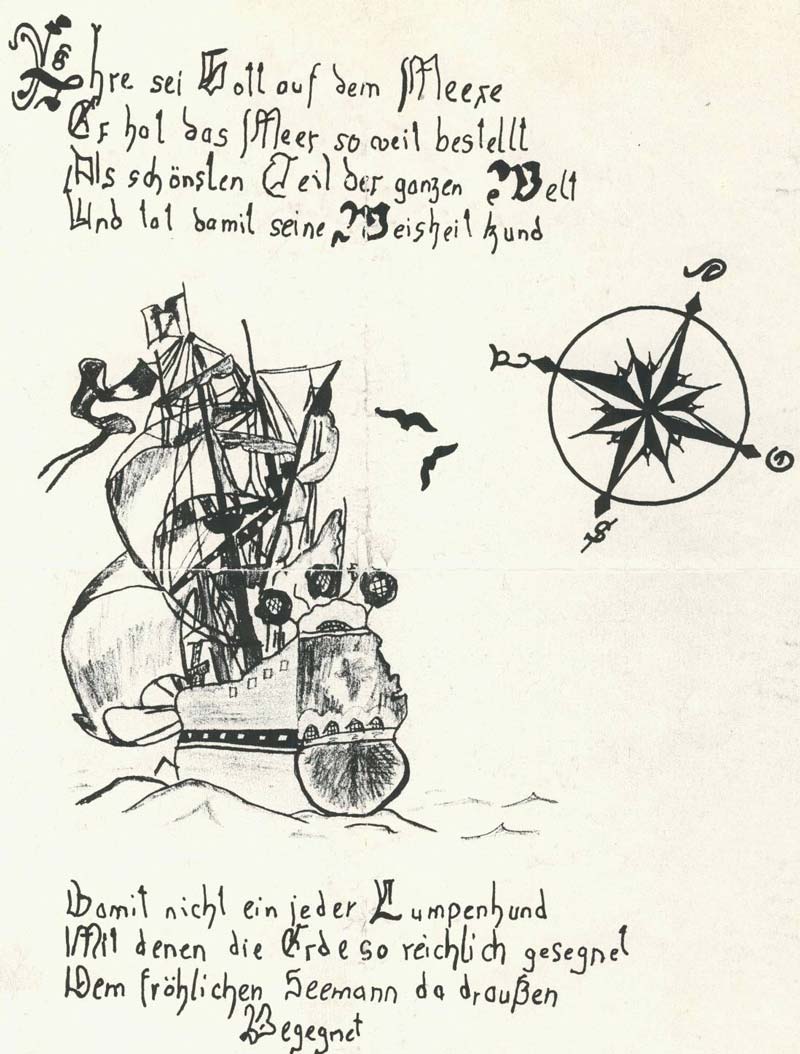 Ehre sei Gott auf dem Meere
Er hat das Meer so weit bestellt
Als schönsten Teil der ganzen Welt
Und tat damit seine Weisheit kund
S
Damit nicht ein jeder Lumpenhund
Mit denen die Erde so reichlich gesegnet
Dem fröhlichen Seemann da draußen
Begegnet